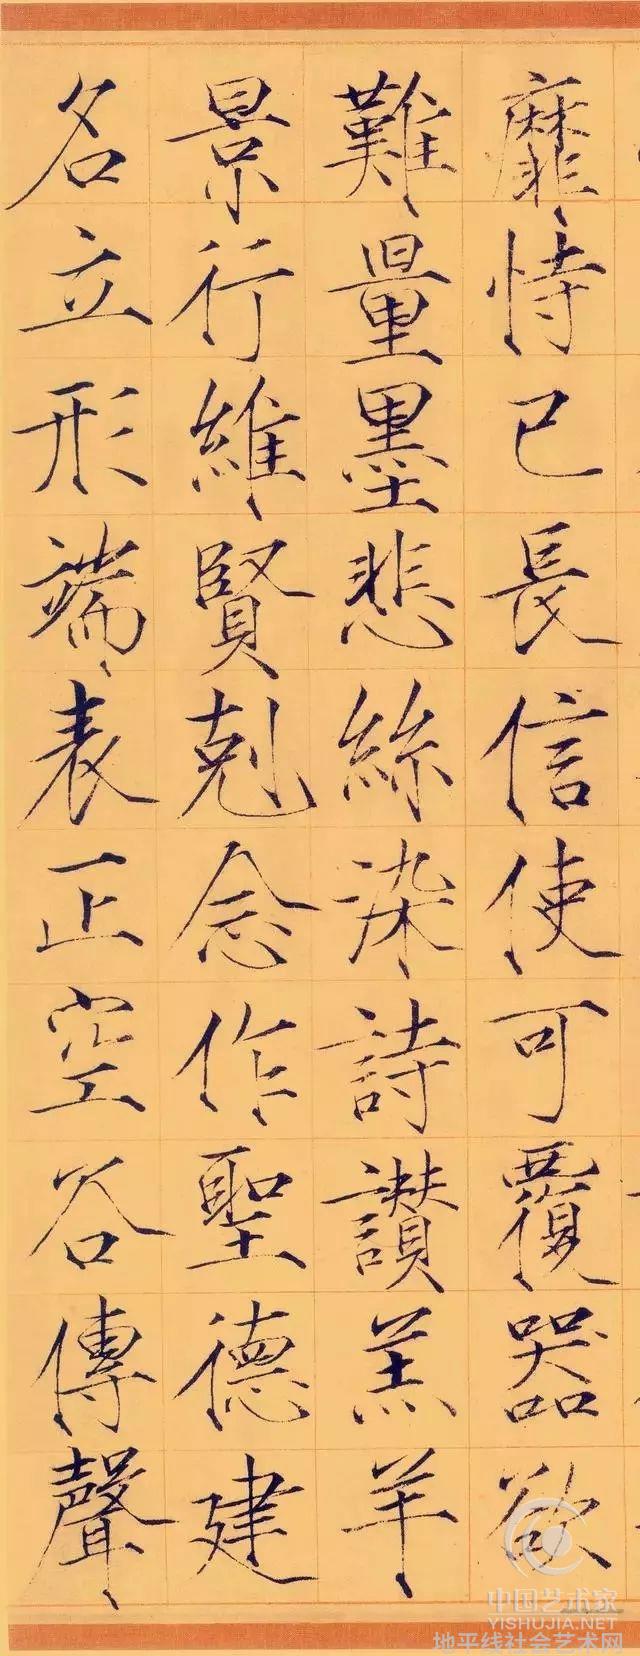 靡恃己長信使可覆器欲
難量墨悲絲染詩讃羔羊
景行維賢剋念作聖德建
名立形端表正空谷傳聲
中国艺术家
YISHUJIA.NET
地平线社会艺术网